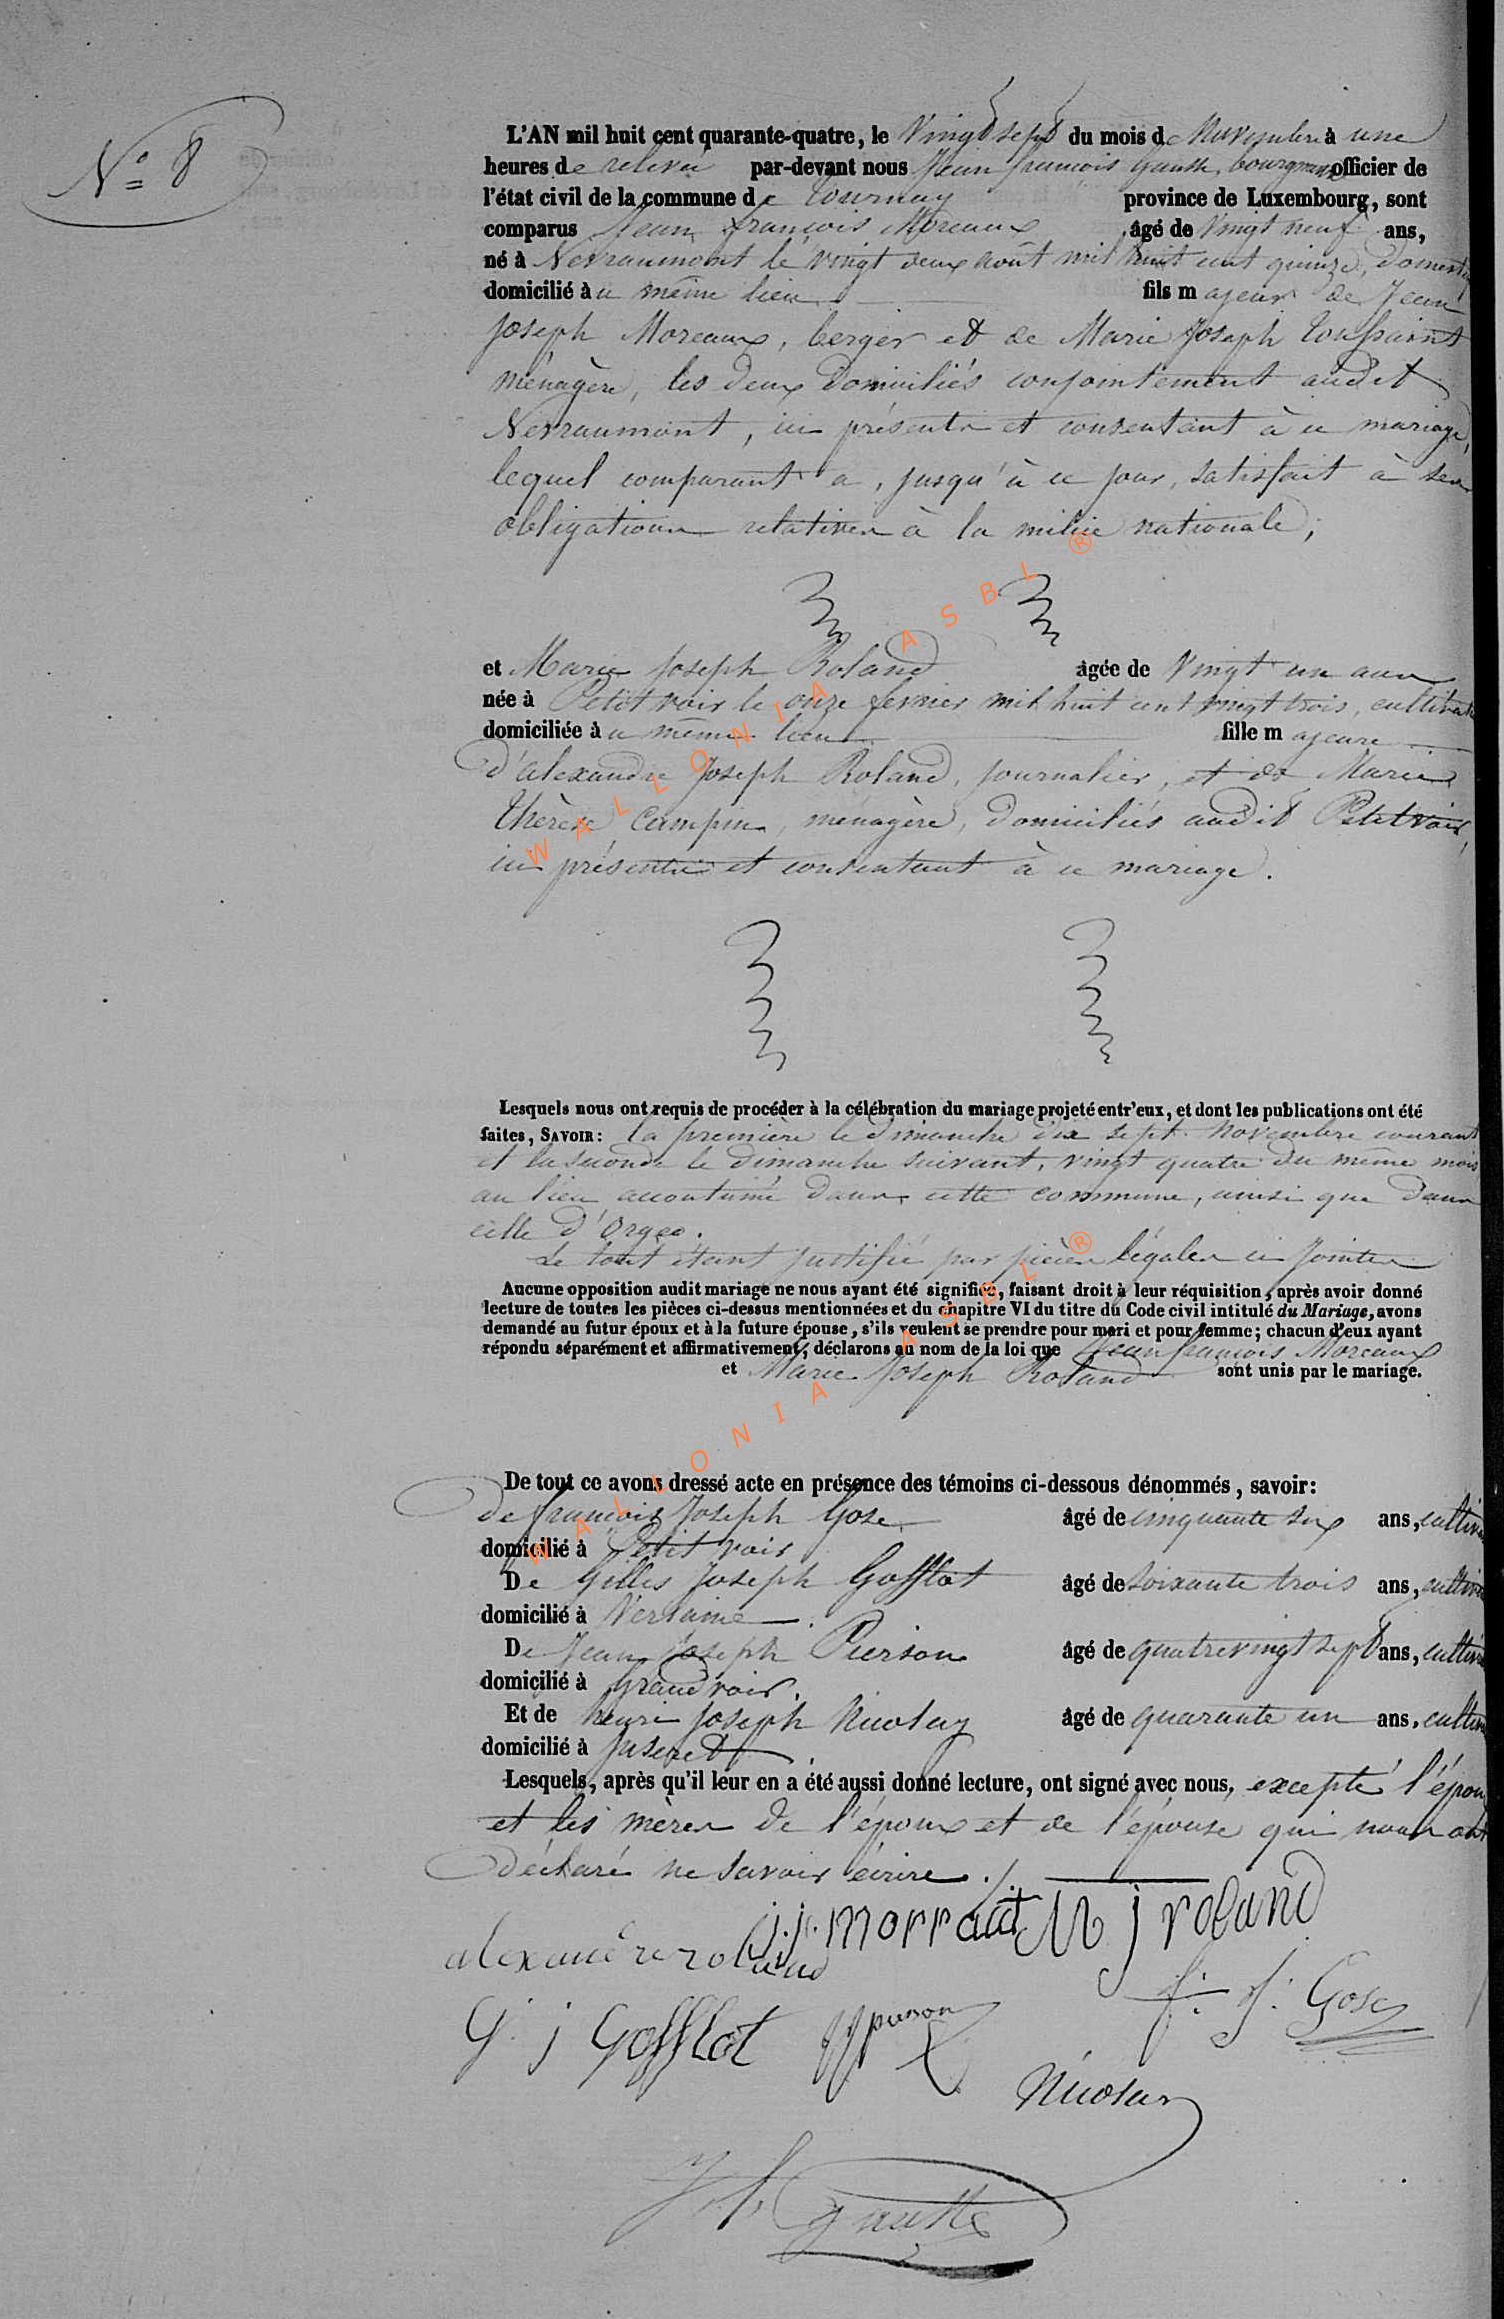 N° 8
L'AN mil huit cent quarante-quatre, le Vingt sept du mois de Novembre à une
heures de relevée par-devant nous Jean françois Gauthe, bourgmestre officier de
l'état civil de la commune de Tournay province de Luxembourg, sont
comparus Jean françois Moreaux âgé de Vingt neuf ans,
né à Nevraumont le vingt deux août mil huit cent quinze, domestique
domicilié à ce même lieu fils majeur de Jean
Joseph Moreaux, berger et de Marie Joseph Toussaint
ménagère, les deux domiciliés conjointement audit
Nevraumont, ici présents et consentant à ce mariage,
lequel comparant a, jusqu'à ce jour, satisfait à ses
obligations relatives à la milice nationale;
et Marie Joseph Roland âgée de Vingt un ans
née à Petitvoir le onze fevrier mil huit cent vingt trois, cultivatrice
domiciliée à ce même lieu fille majeure
d'alexandre Joseph Roland, journalier, et de Marie
Thérèse Campin, ménagère, domiciliés audit Petitvoir,
ici présents et consentant à ce mariage.
Lesquels nous ont requis de procéder à la célébration du mariage projeté entr'eux, et dont les publications ont été
faites, SAVOIR: la première le dimanche dix sept Novembre courant
et la seconde le dimanche suivant, vingt quatre du même mois
au lieu accoutumé dans cette commune, ainsi que dans
celle d'Orgeo.
Le tout étant justifié par pièces légales ci jointes
Aucune opposition audit mariage ne nous ayant été signifiée, faisant droit à leur réquisition, après avoir donné
lecture de toutes les pièces ci-dessus mentionnées et du chapitre VI du titre du Code civil intitulé du Mariage, avons
demandé au futur époux et à la future épouse, s'ils veulent se prendre pour mari et pour femme; chacun d'eux ayant
répondu séparément et affirmativement, déclarons au nom de la loi que Jean françois Moreaux
et Marie Joseph Roland sont unis par le mariage.
De tout ce avons dressé acte en présence des témoins ci-dessous dénommés, savoir:
De françois Joseph Gose âgé de cinquante six ans, cultiv
domicilié à Petit voir
De Gilles Joseph Gofflot âgé de soixante trois ans, cultiv
domicilié à Verlaine.
De Jean Joseph Pierson âgé de quatrevingt sept ans, cultiv
domicilié à Grandvoir.
Et de henri Joseph Nicolay âgé de quarante un ans, cultiv
domicilié à Juseret.
Lesquels, après qu'il leur en a été aussi donné lecture, ont signé avec nous, excepté l'époux
et les mères de l'époux et de l'épouse qui nous ont
déclaré ne savoir écrire./.
j. j. morraut M j roland
alexandre roland
f. J. Gose
G. j Gofflot JJ pierson
Nicolay
J. f. Gauthe
WALLONIA ASBL ®
WALLONIA ASBL ®